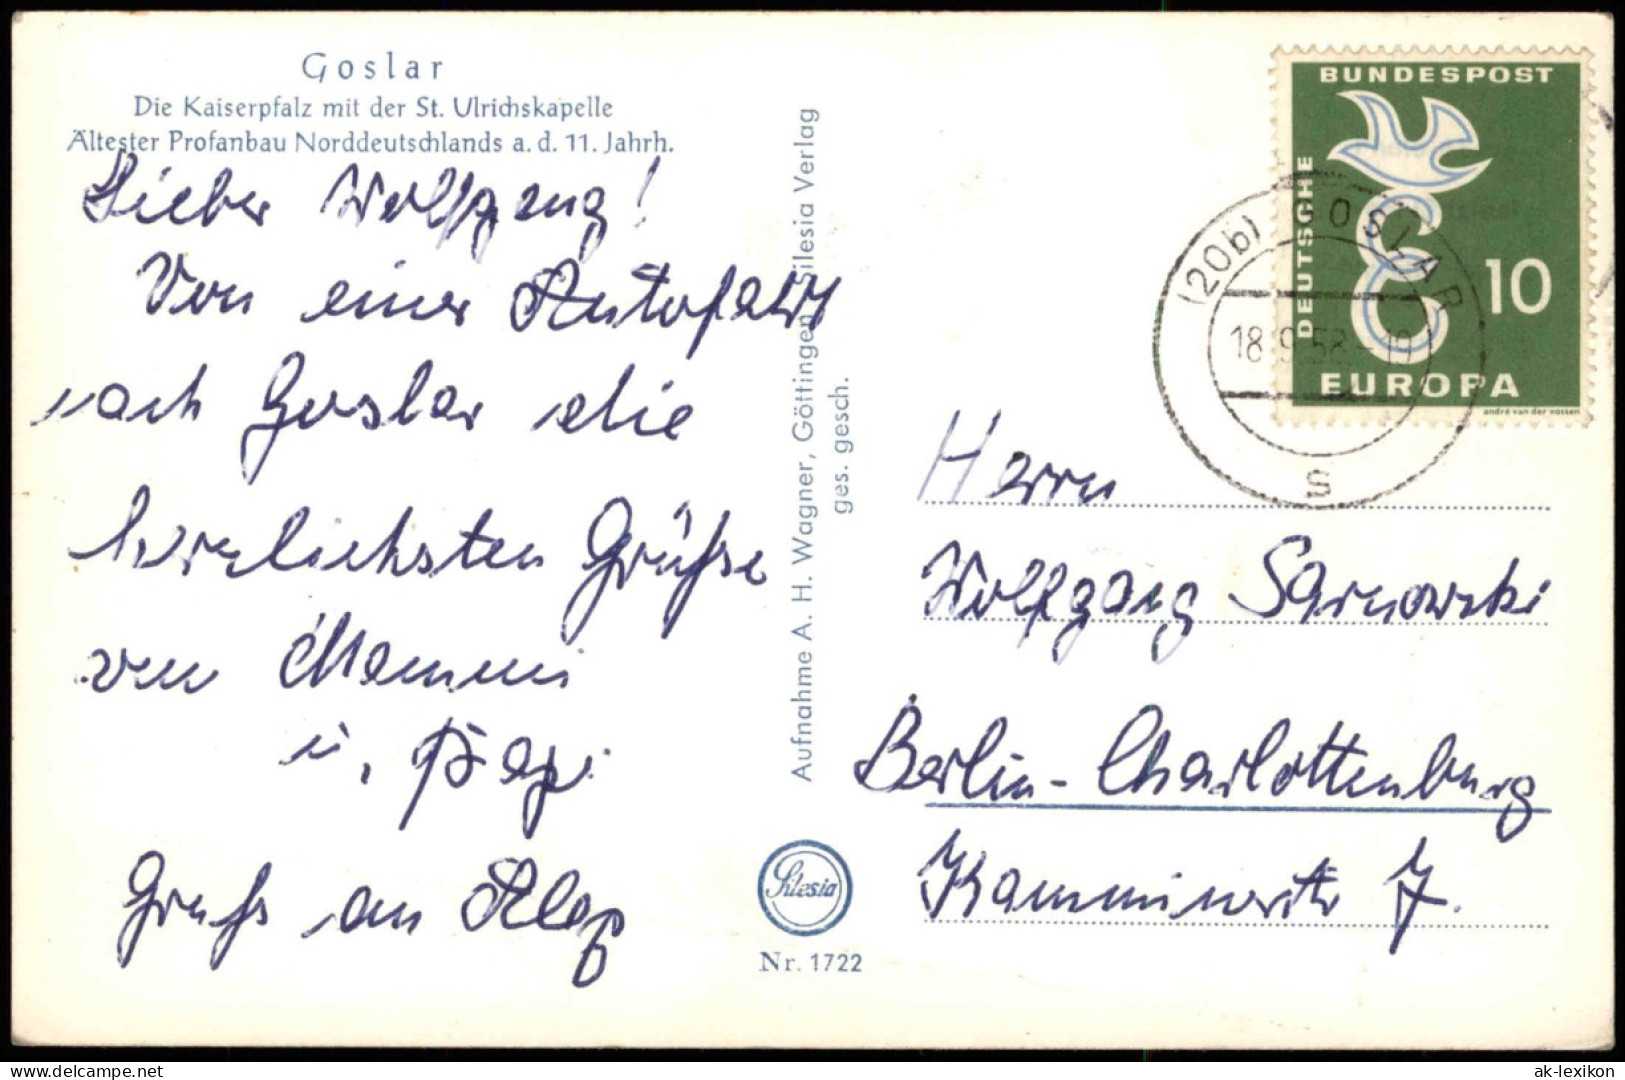 Goslar
Die Kaiserpfalz mit der St. Ulrichskapelle
Ältester Profanbau Norddeutschlands a. d. 11. Jahrh.
Lieber Wolfgang!
Von einer Autofahrt
nach Goslar die
herzlichsten Grüße
von Mammi
u. Papi
Gruß an
Aufnahme A. H. Wagner, Göttingen Silesia Verlag
ges. gesch.
Silesia
Nr. 1722
BUNDESPOST
DEUTSCHE
10
EUROPA
andré van der vossen
(20b) GOSLAR
18.9.58-19
s
Herrn
Wolfgang Sarnowski
Berlin-Charlottenburg
7.
delcampe.net
ak-lexikon